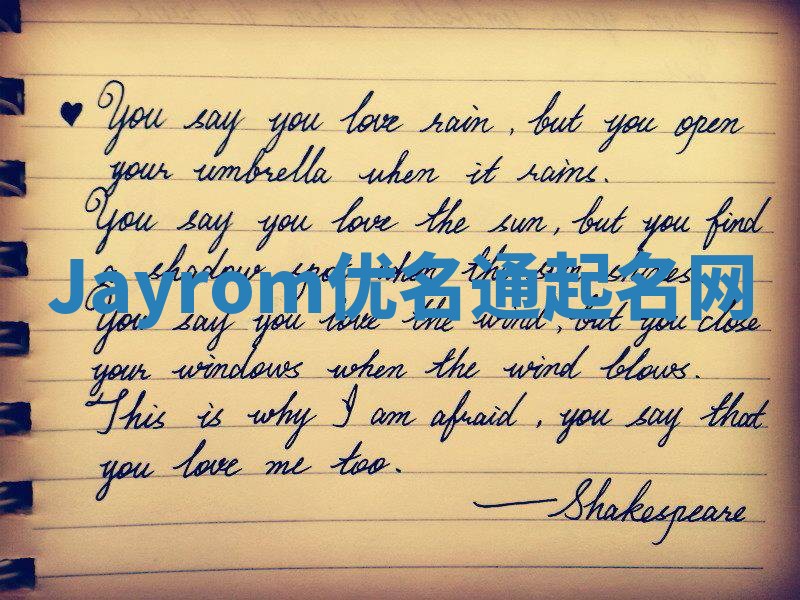 ♥ You say you love rain, but you open
your umbrella when it rains.
You say you love the sun, but you find
a shadow spot when the sun shines.
Jayrom优名通起名网
You say you love the wind, but you close
your windows when the wind blows.
This is why I am afraid, you say that
you love me too.
—Shakespeare